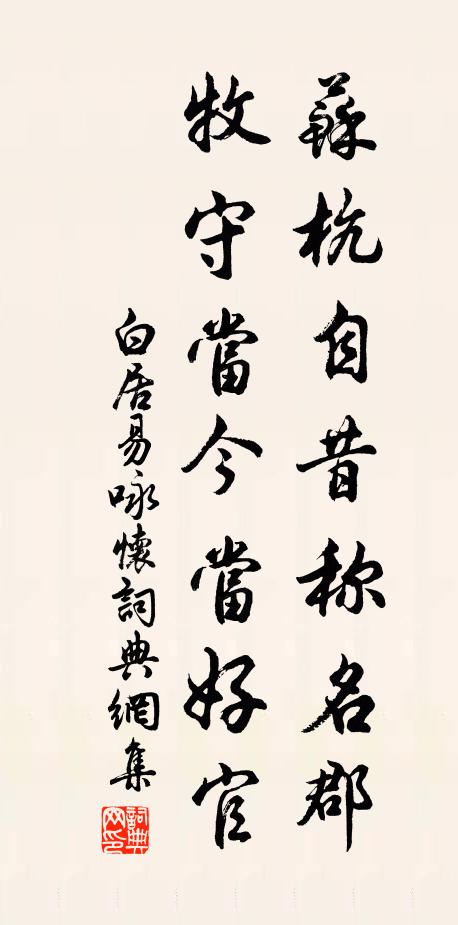 蘇杭自昔称名郡
牧守當今當好官
白居易咏懷詞典網集
詞典網印